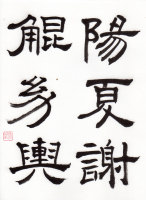 陽夏謝
鯤幼輿